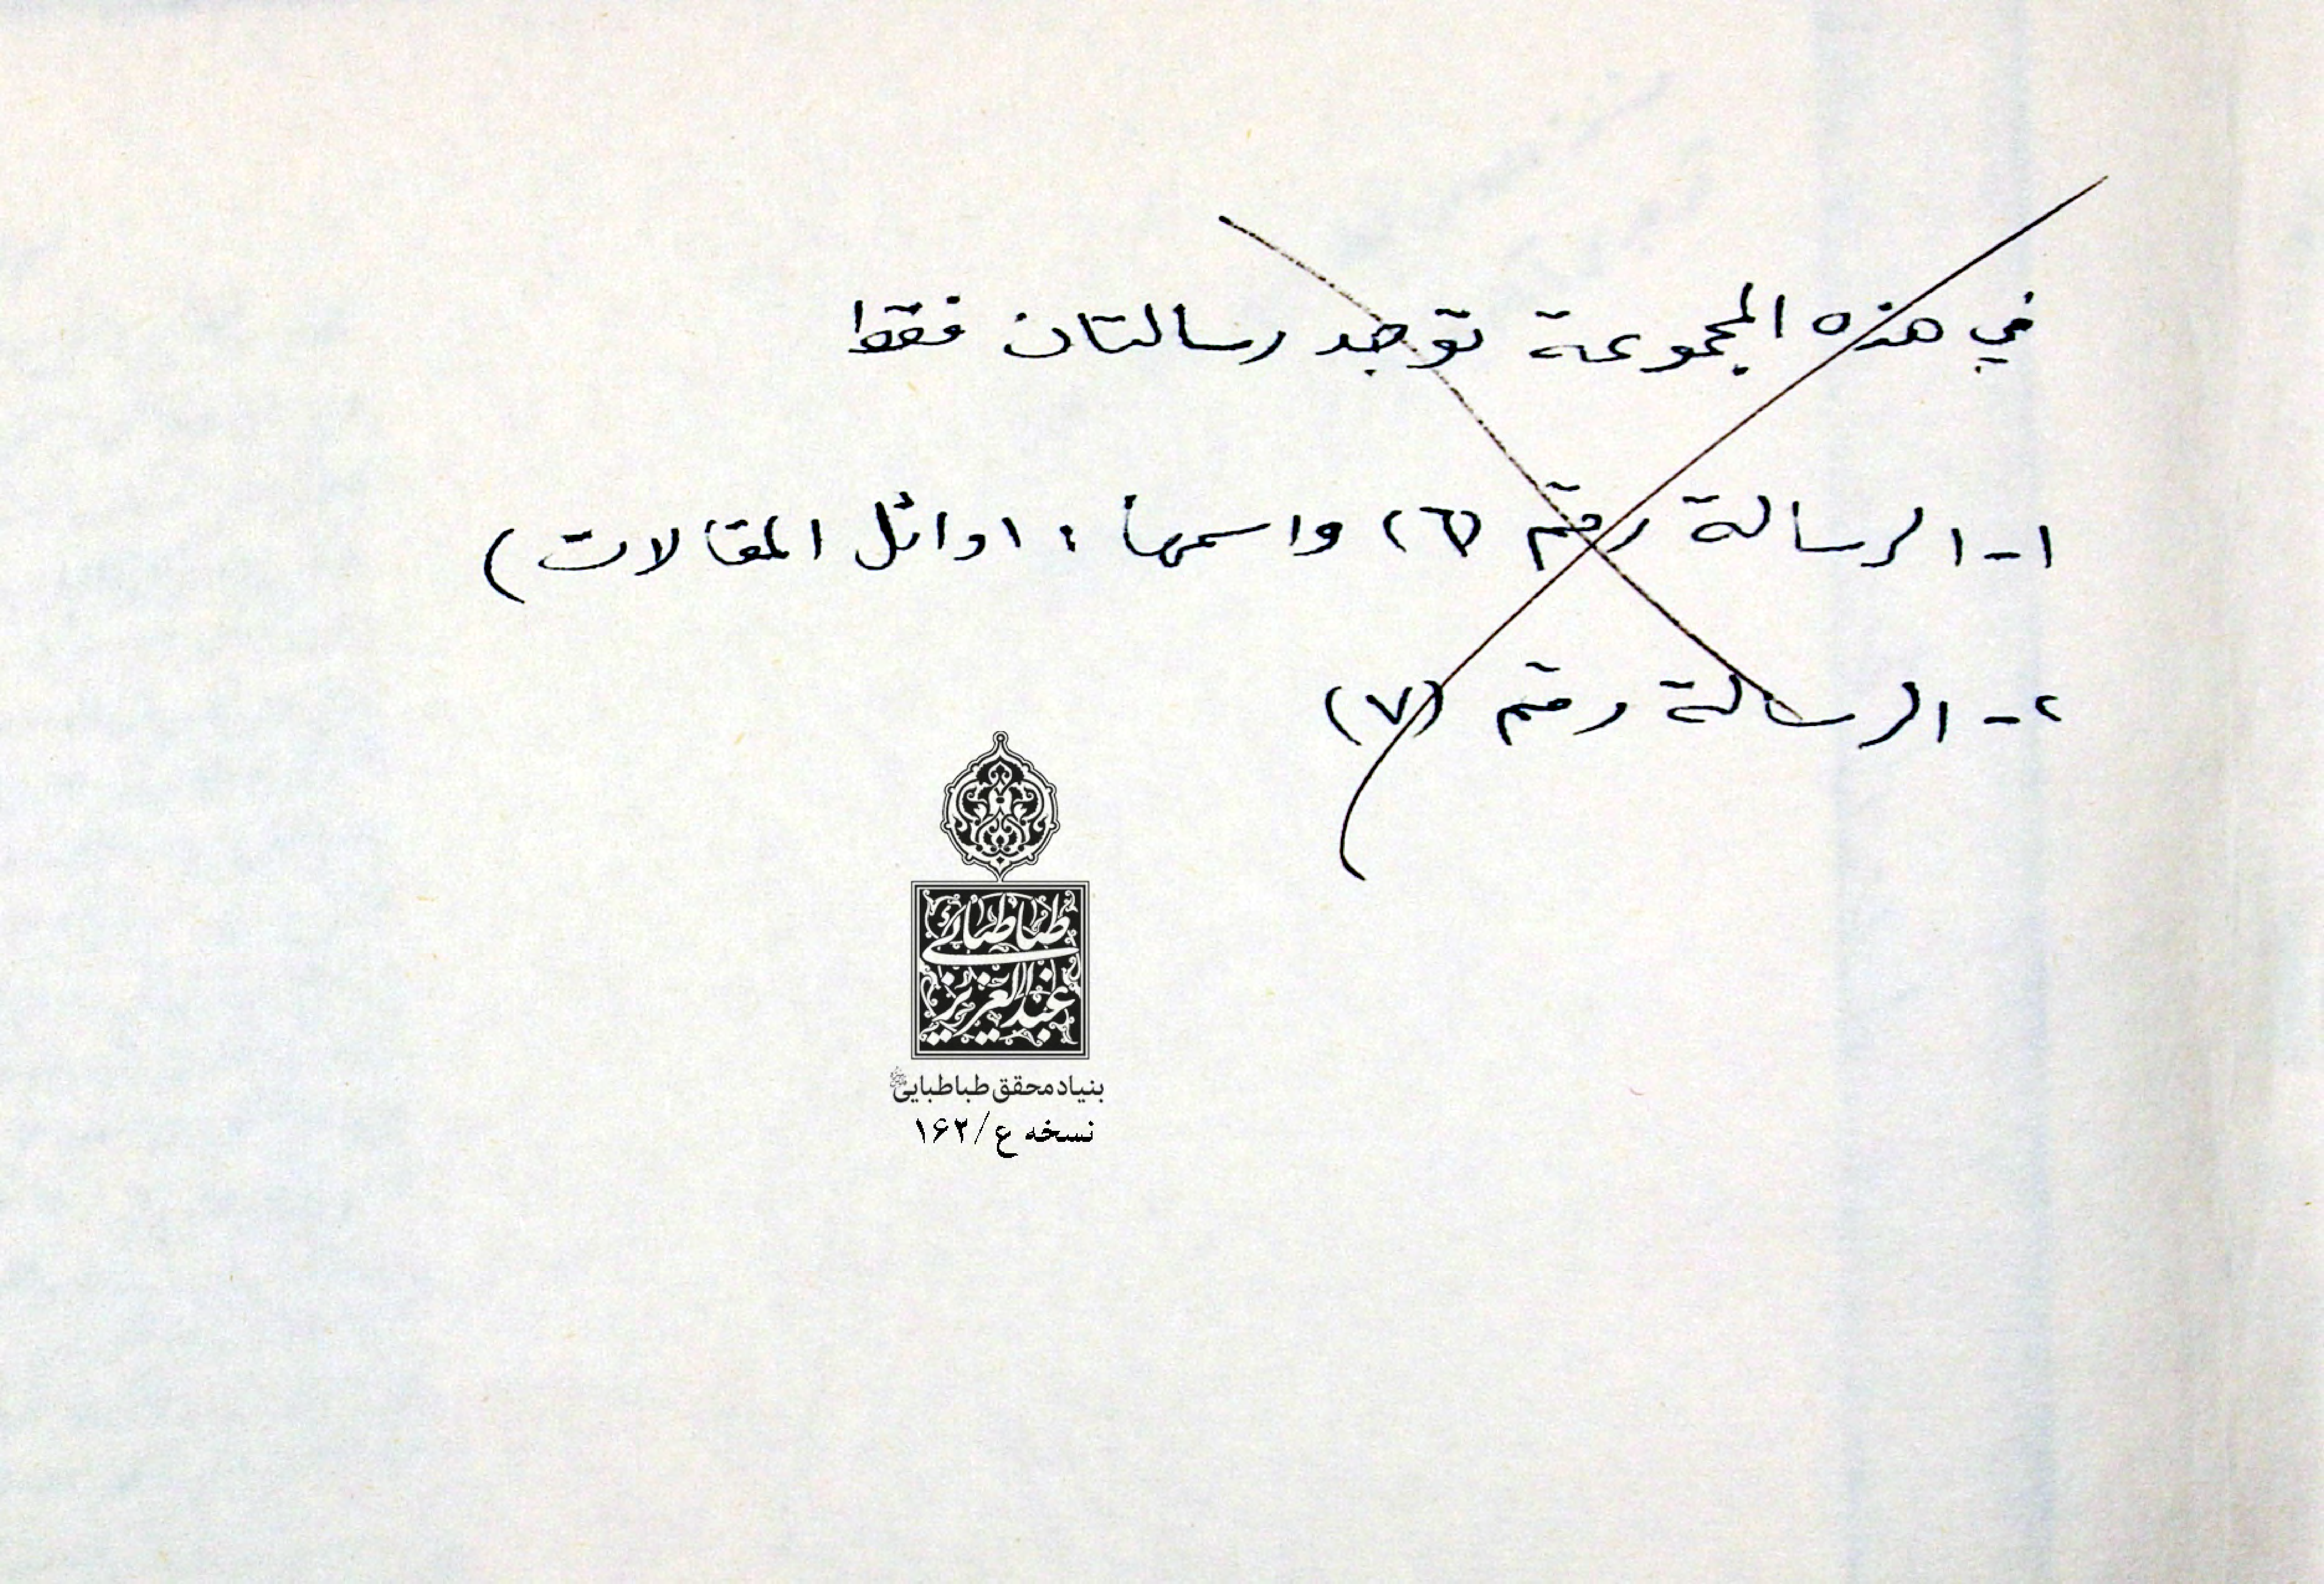 في هذه المجموعة توجد رسالتان فقط
١- الرسالة رقم (٦) واسمها : اوائل المقالات)
٢- الرسالة رقم (٧)
طباطبائی
عبدالعزیز
بنیاد محقق طباطبایی
نسخه ع/۱۶۲